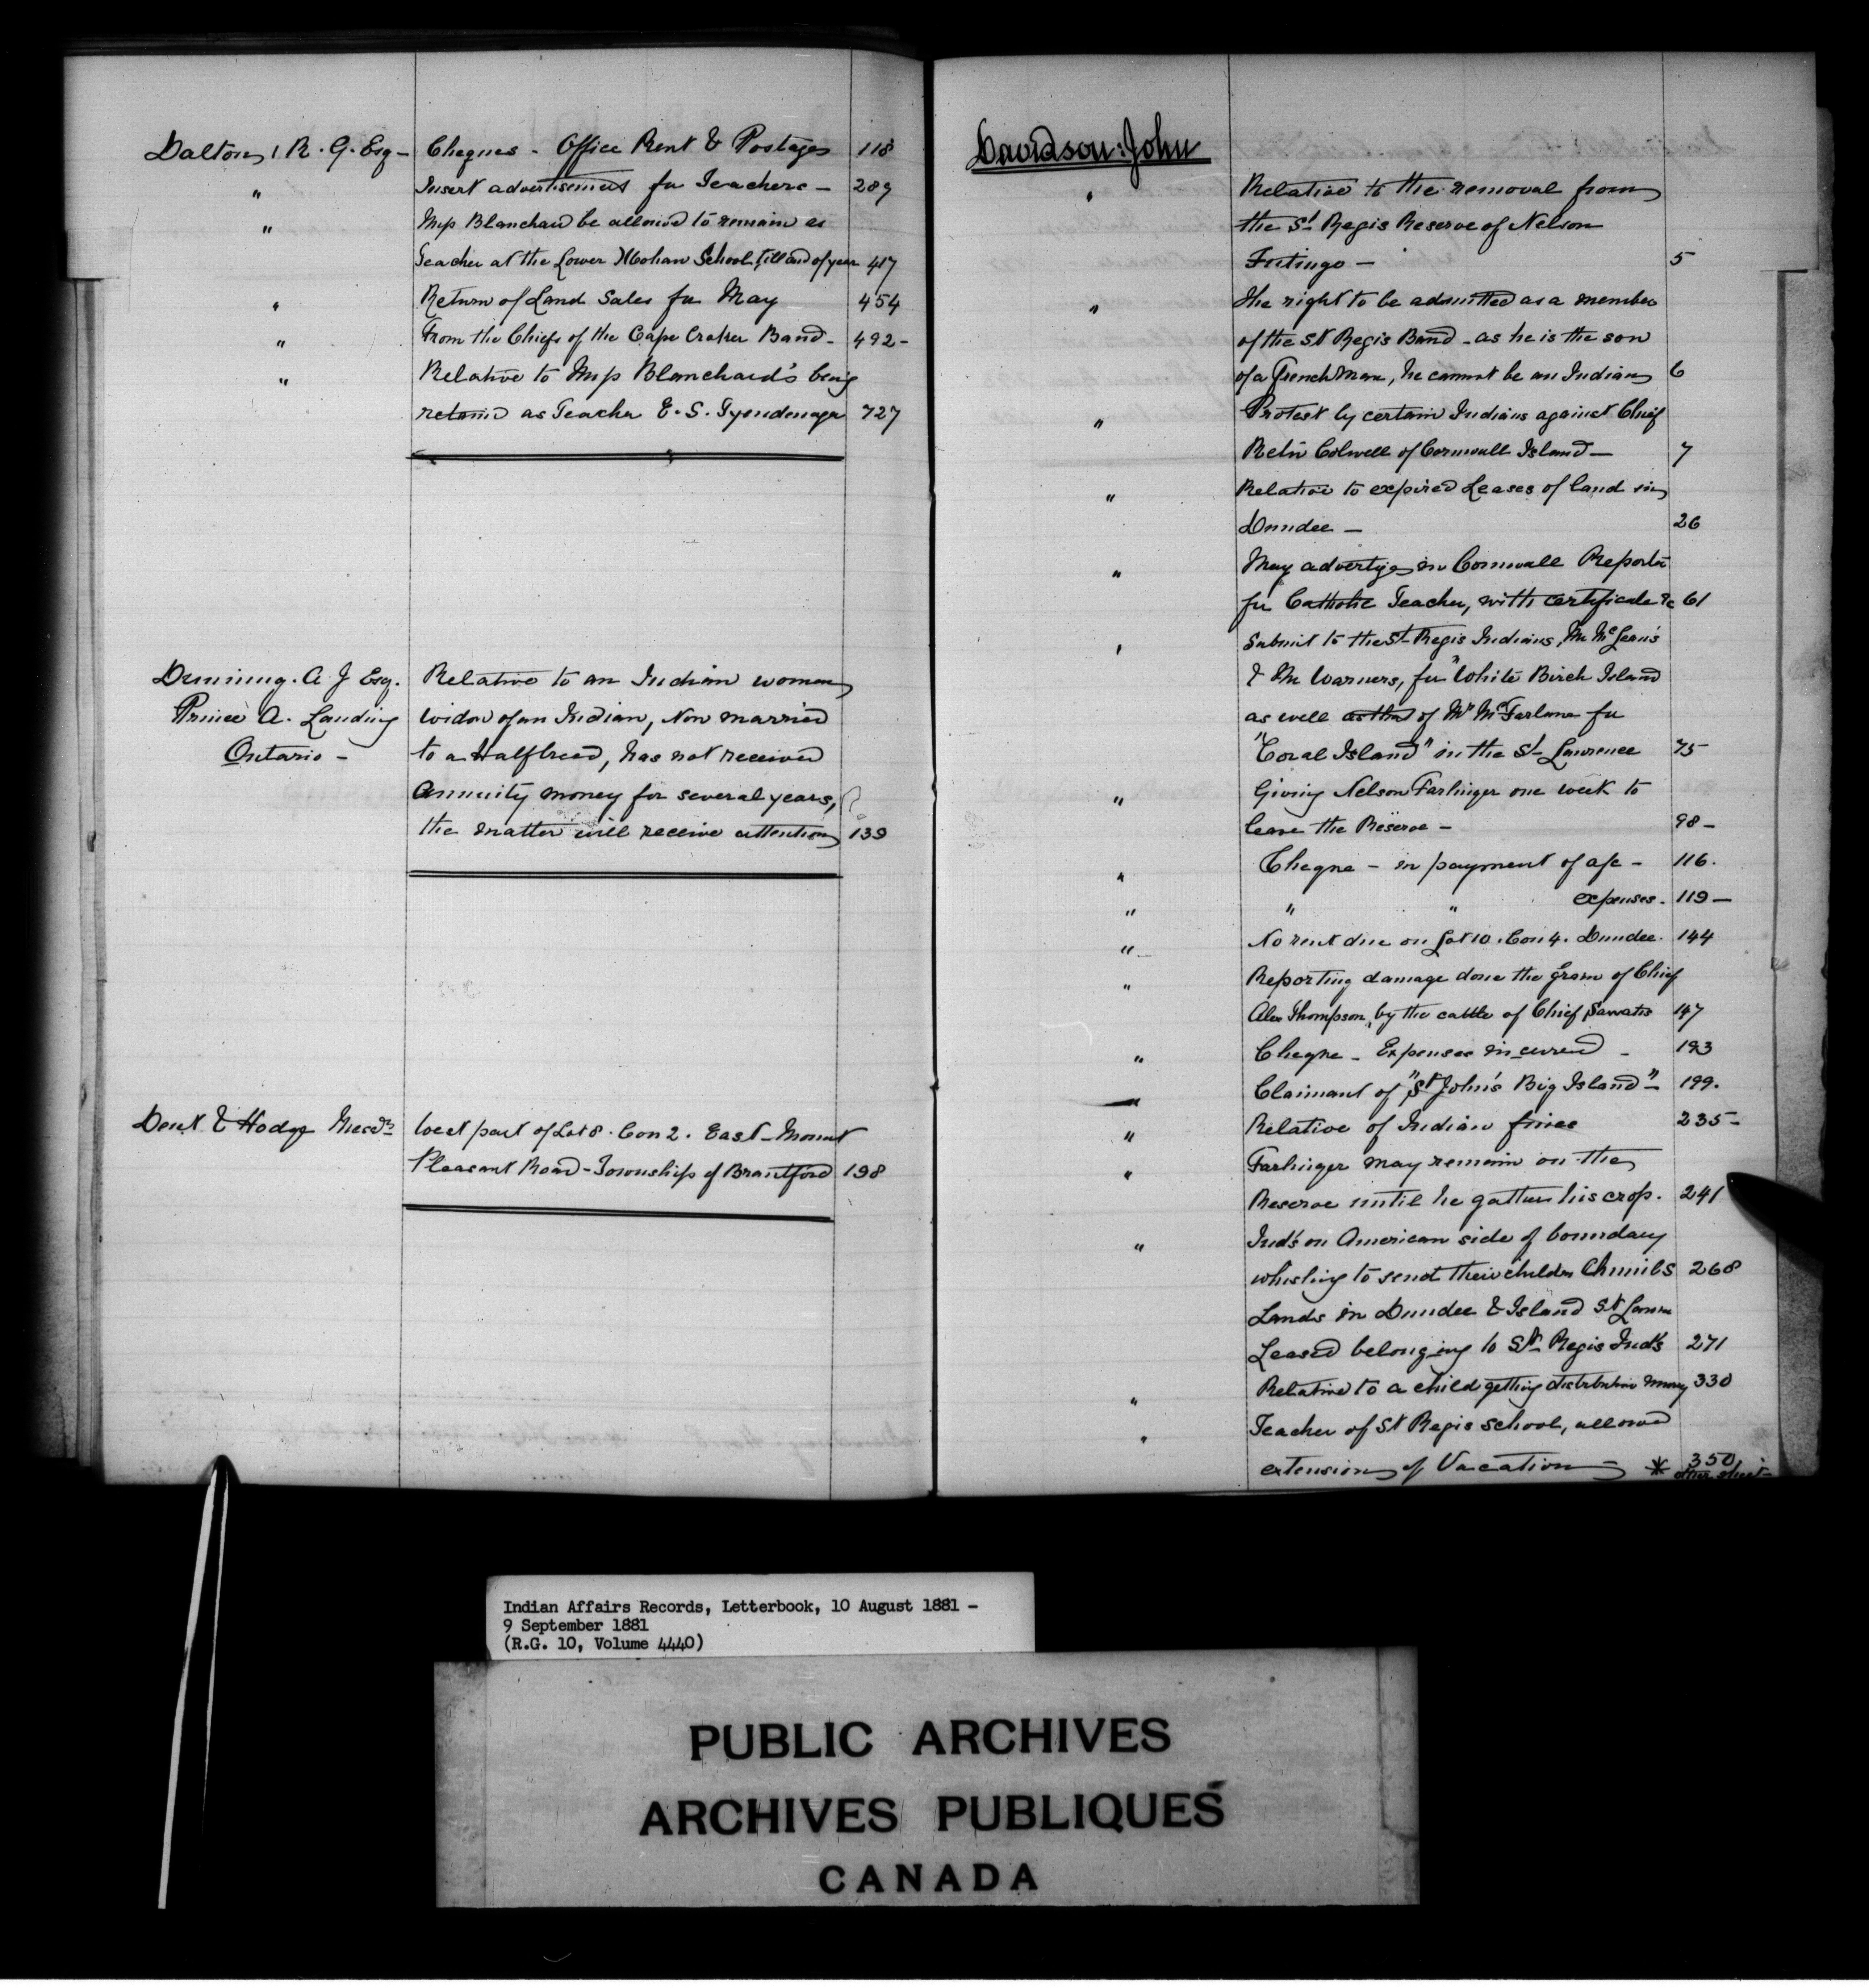 Dalton, R. G. Esq - Cheques - Office Rent & Postages 118
" Insert advertisement for Teachers - 289
" Miss Blanchard be allowed to remain as
Teacher at the Lower Mohawk School, till end of year 417
" Return of Land Sales for May 454
" From the Chiefs of the Cape Croker Band - 492 -
" Relative to Miss Blanchard's being
retained as Teacher E. S. Tyendenaga 727
Dunning. A J Esq. Relative to an Indian woman
Prince A. Landing widow of an Indian, Now married
Ontario - to a Halfbreed, has not received
Annuity money for several years,
the matter will receive attention 139
Dent & Hodge West part of Lot 8. Con 2. East - Mount
Pleasant Road - Township of Brantford 198
Davidson: John
" Relative to the removal from
the St Regis Reserve of Nelson
5
" The right to be admitted as a member
of the St Regis Band - as he is the son
of a French Man, he cannot be an Indian 6
" Protest by certain Indians against Chief
Colwell of Cornwall Island - 7
" Relative to expired Leases of land in
Dundee - 26
" May advertise in Cornwall Reporter
for Catholic Teacher, with certificate &c 61
" Submit to the St Regis Indians, Mr McLean's
& Mr Warners, for "White Birch Island
as well as that of Mr McFarlane for
"Coral Island" in the St Lawrence 75
" Giving Nelson Farlinger one week to
leave the Reserve - 98 -
" Cheque - in payment of a/c - 116.
" " " expenses. 119 -
" No rent due on Lot 10. Con 4. Dundee. 144
" Reporting damage done the Grain of Chief
Alex Thompson, by the cattle of Chief Sawatis 147
" Cheque - Expenses incurred - 193
" Claimant of "St John's Big Island" - 199.
" Relative of Indian fines 235 -
" Farlinger may remain on the
Reserve until he gathers his crop. 241
" Ind's on American side of boundary
whishing to send their children 268
Lands in Dundee & Island St Lawre
Leased belonging to St Regis Ind's 271
" Relative to a child getting distribution money 330
" Teacher of St Regis School, allowed
extension of Vacation - * 350
other sheet -
Indian Affairs Records, Letterbook, 10 August 1881 -
9 September 1881
(R.G. 10, Volume 4440)
PUBLIC ARCHIVES
ARCHIVES PUBLIQUES
CANADA